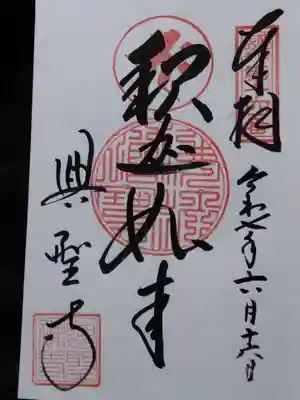 奉拝
令和七年六月十六日
釈迦如来
興聖寺